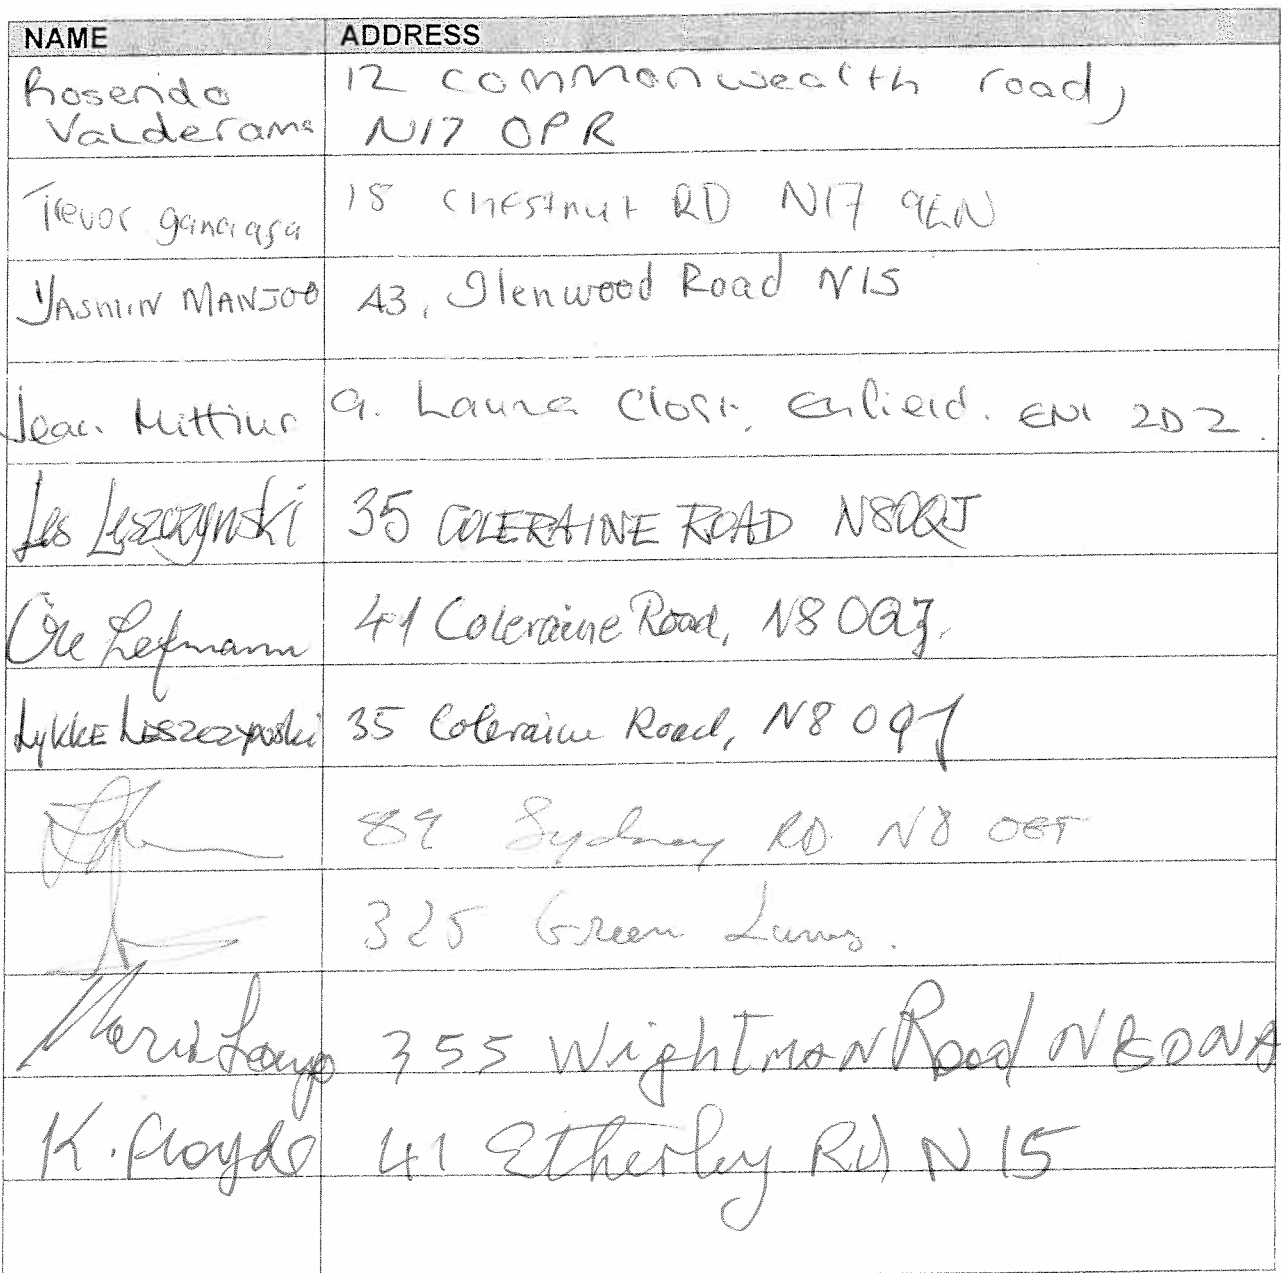 NAME ADDRESS
Rosendo 12 commonwealth road,
Valderama N17 0PR
Trevor 18 Chestnut RD N17 9EN
YASMIN MANJOO A3, Glenwood Road N15
Jean 9. Laura Close, Enfield. EN1 2DZ.
Les Leszczynski 35 COLERAINE ROAD N80QJ
Ole Lefmann 41 Coleraine Road, N8 0QJ.
LYKKE LESZCZYNSKI 35 Coleraine Road, N8 0QJ
89 Sydney RD N8 0ET
325 Green Lanes.
355 WightMAN Road N80NA
K. floyde 41 Etherley Rd N15